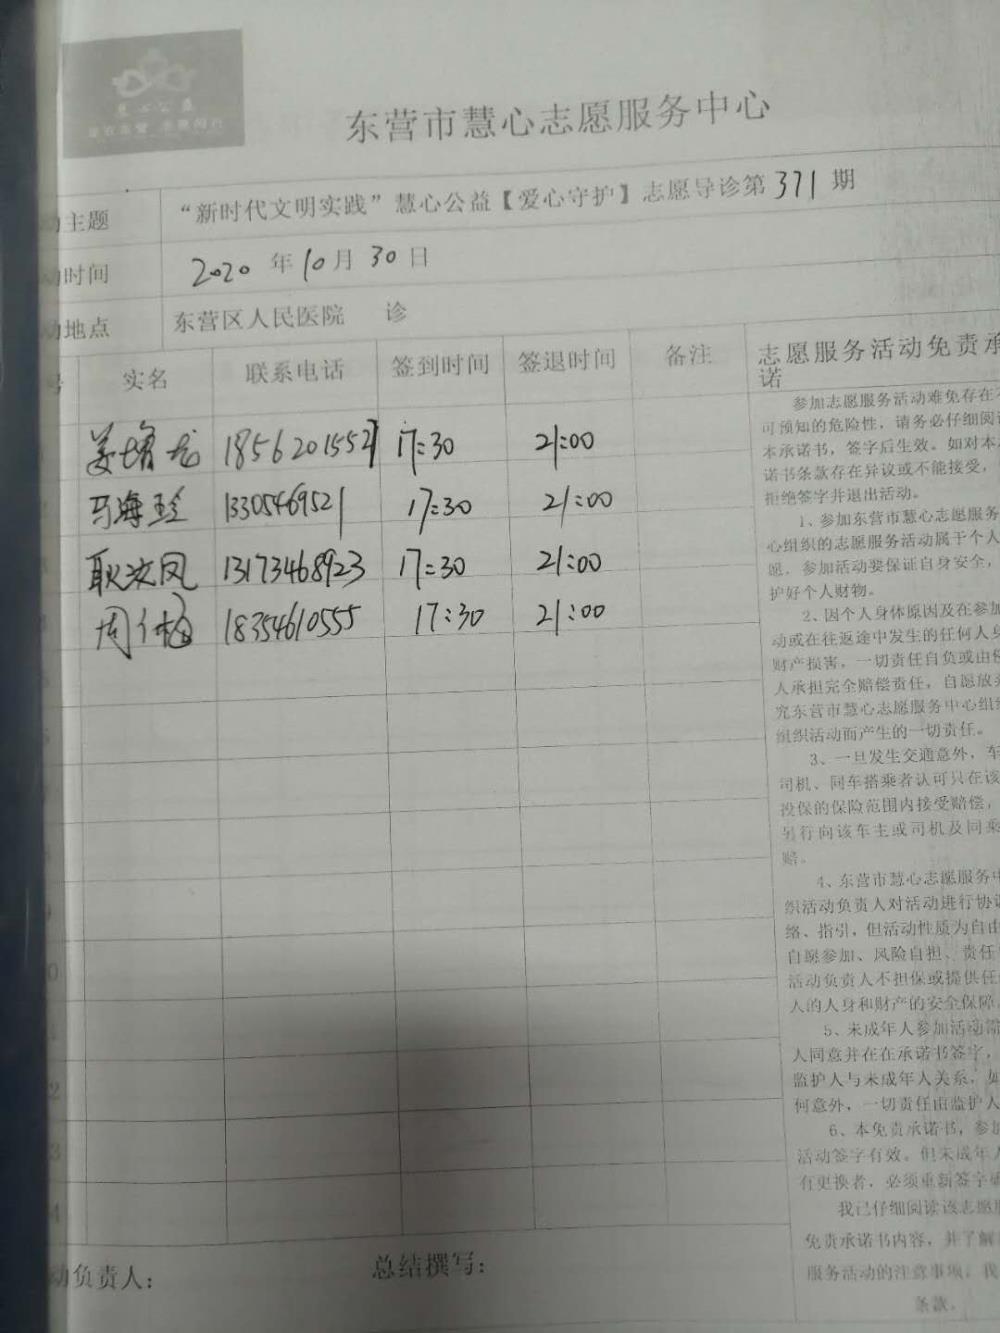 东营市慧心志愿服务中心
动主题 “新时代文明实践”慧心公益【爱心守护】志愿导诊第371期
动时间 2020年10月30日
动地点 东营区人民医院 诊
号 实名 联系电话 签到时间 签退时间 备注 志愿服务活动免责承
诺
17:30 21:00
马海玲 13305469521 17:30 21:00
耿汝凤 13173468923 17:30 21:00
周 18354610555 17:30 21:00
参加志愿服务活动难免存在不
可预知的危险性，请务必仔细阅读
本承诺书，签字后生效。如对本
诺书条款存在异议或不能接受，
拒绝签字并退出活动。
1、参加东营市慧心志愿服务
心组织的志愿服务活动属于个人
愿，参加活动要保证自身安全，
护好个人财物。
2、因个人身体原因及在参加
动或在往返途中发生的任何人身
财产损害，一切责任自负或由
人承担完全赔偿责任，自愿放
究东营市慧心志愿服务中心组
组织活动而产生的一切责任。
3、一旦发生交通意外，车
司机、同车搭乘者认可只在该
投保的保险范围内接受赔偿，
另行向该车主或司机及同乘
赔。
4、东营市慧心志愿服务中
织活动负责人对活动进行协
络、指引，但活动性质为自由
自愿参加、风险自担、责任
活动负责人不担保或提供任
人的人身和财产的安全保障
5、未成年人参加活动需
人同意并在在承诺书签字，
监护人与未成年人关系，如
何意外，一切责任由监护人
6、本免责承诺书，参加
活动签字有效。但未成年人
有更换者，必须重新签字
我已仔细阅读该志愿服
免责承诺书内容，并了解
服务活动的注意事项，我
条款。
动负责人： 总结撰写：